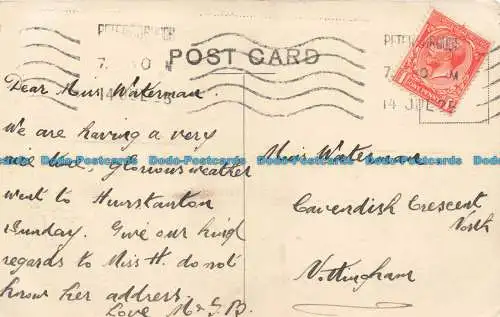 PETERBOROUGH
7. 30 M
14 JULE 25
POST CARD
PETERBOROUGH
7. 30 M
14 JULE 25
Dear Miss Waterman.
We are having a very
nice time, glorious weather
went to Hunstanton
Sunday. Give our kind
regards to Miss H. do not
know her address.
Love Mr G.B.
Miss Waterman
Cavendish Crescent
North
Nottingham
Bodo-Postcards Bodo-Postcards Bodo-Postcards Bodo-Postcards